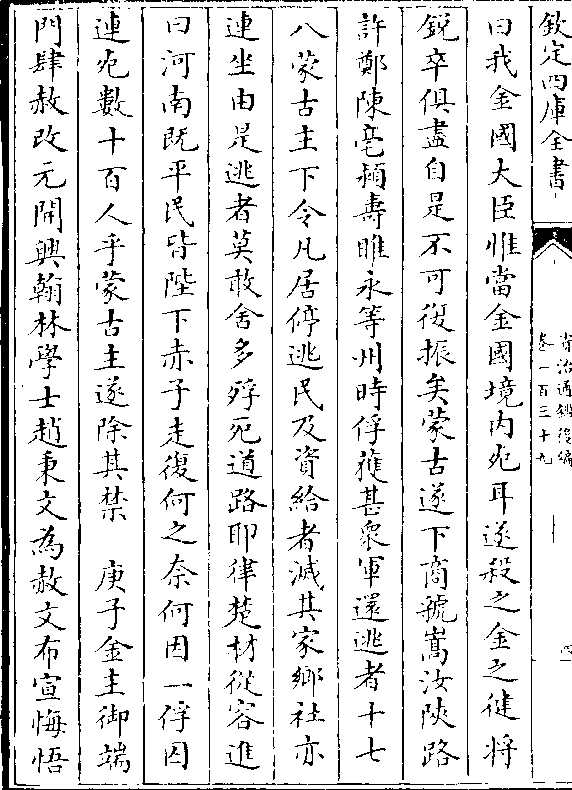 欽定四庫全書
資治通鑑後編
卷一百三十九
四
曰我金國大臣惟當金國境内死耳遂殺之金之健將
鋭卒俱盡自是不可復振矣蒙古遂下商虢嵩汝陝路
許鄭陳亳潁壽睢永等州時俘獲甚衆軍還逃者十七
八蒙古主下令凡居停逃民及資給者滅其家鄉社亦
連坐由是逃者莫敢舍多殍死道路耶律楚材從容進
曰河南既平民皆陛下赤子走復何之奈何因一俘囚
連死數十百人乎蒙古主遂除其禁　庚子金主御端
門肆赦改元開興翰林學士趙秉文為赦文布宣悔悟